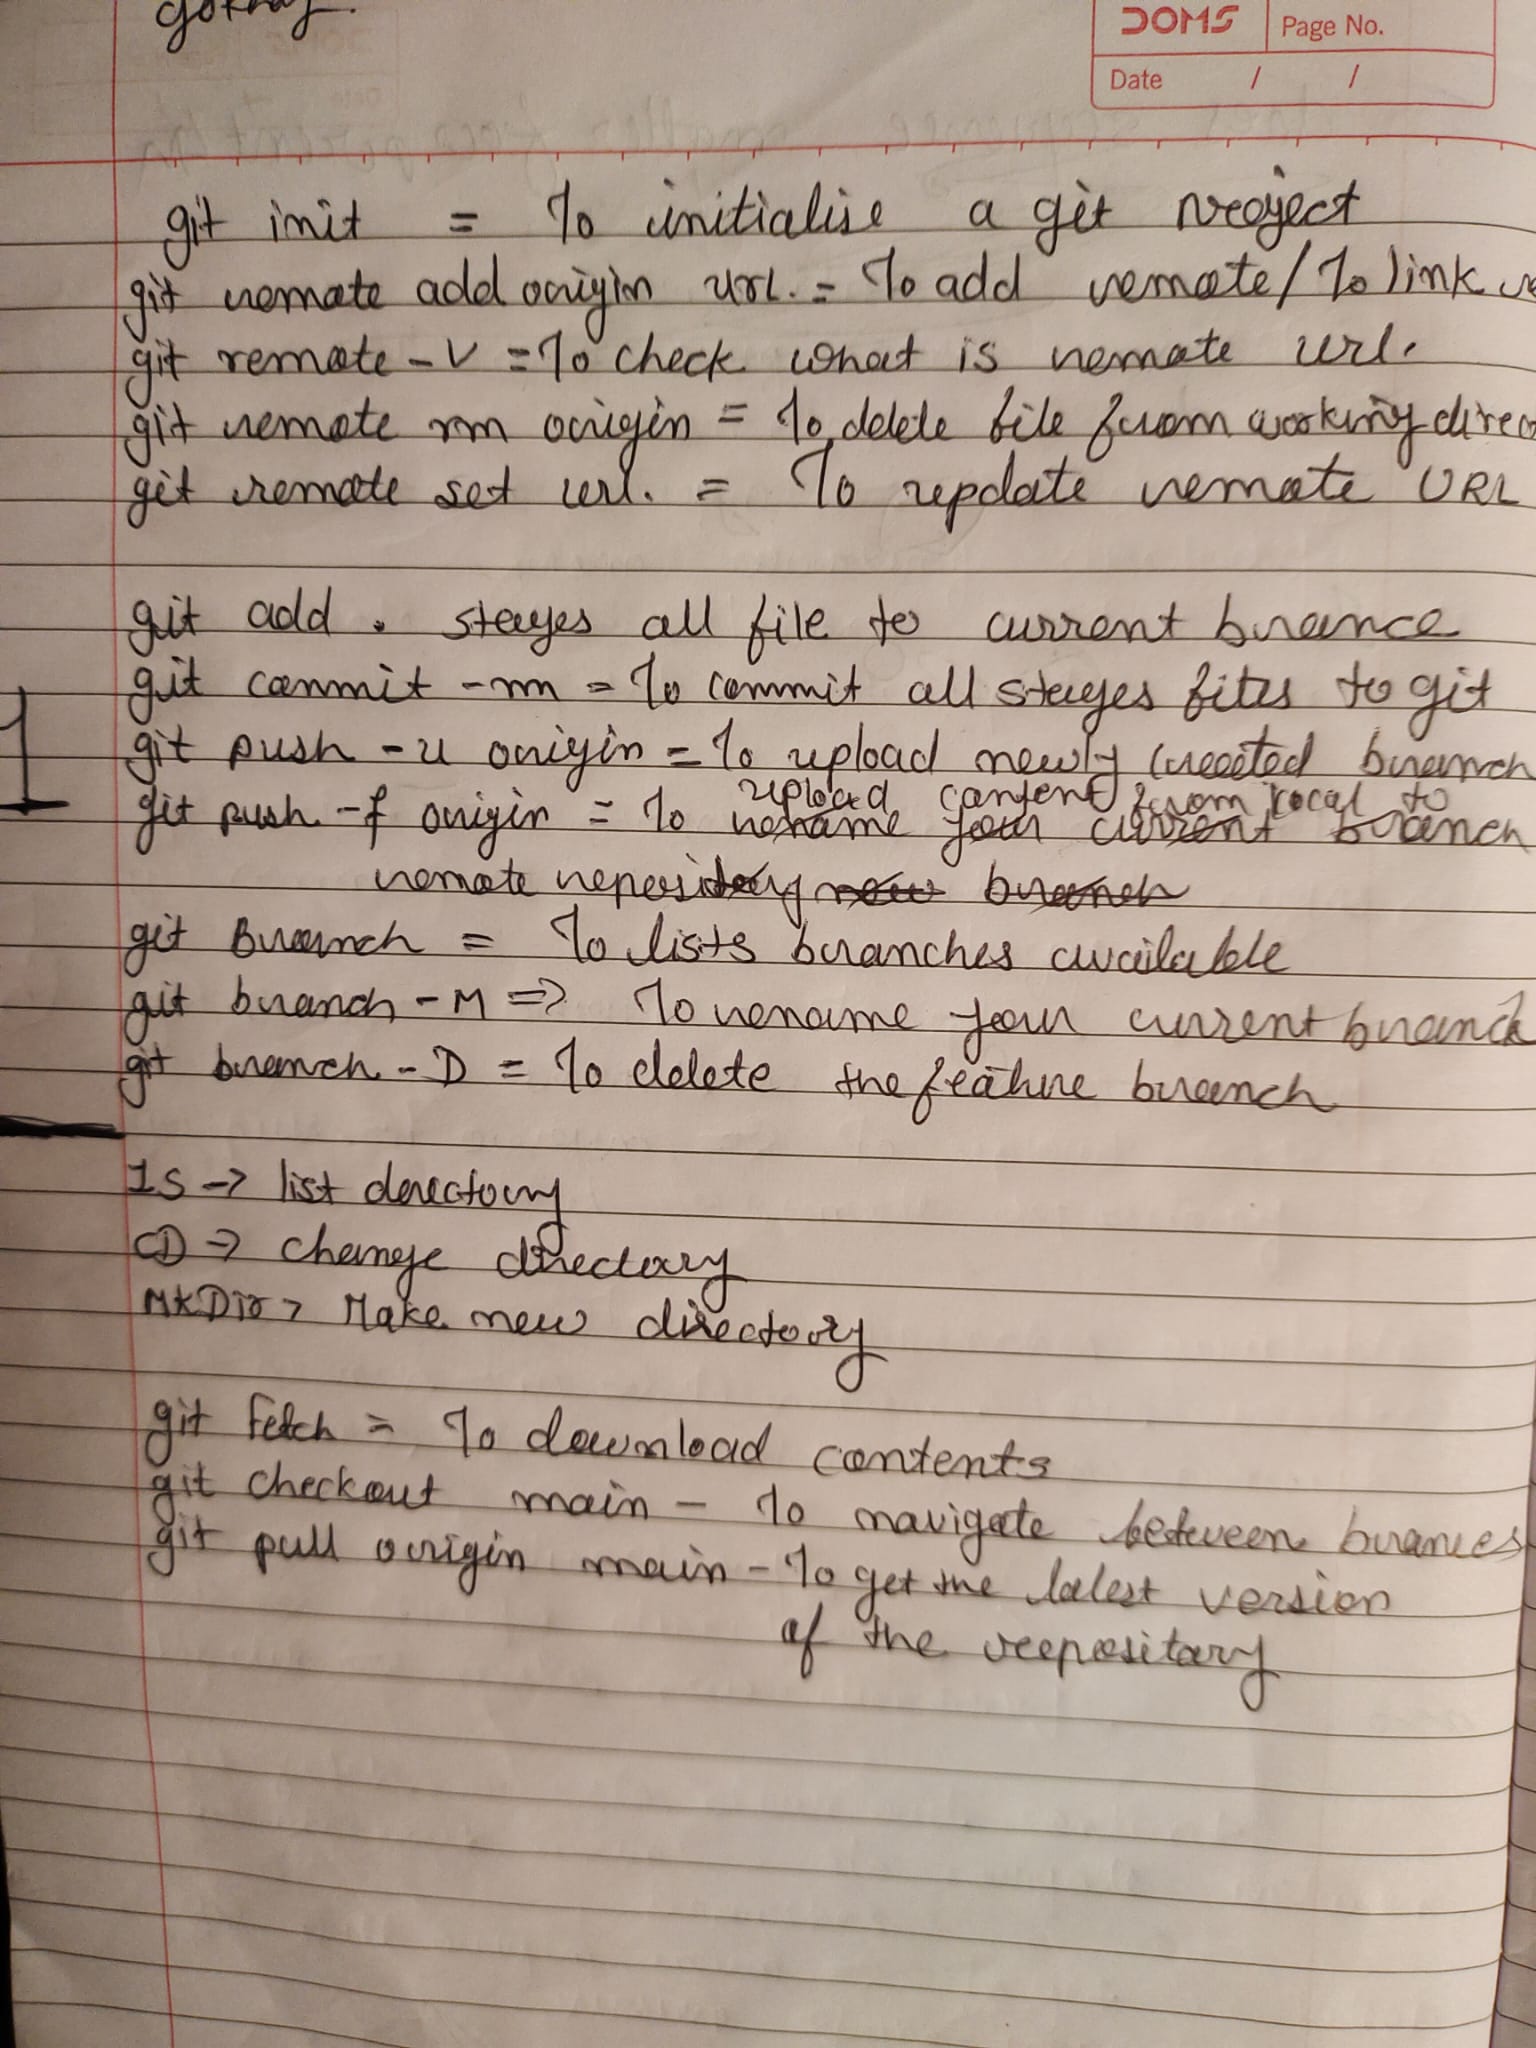 DOMS
Page No.
Date / /
git init = To initialise a git project
git remote add origin url. = To add remote / To link
git remote -v = To check what is remote url.
git remote rm origin = To delete file from working direc
git remote set url. = To update remote URL
git add . stages all file to current brance
git commit -m = To commit all stages files to git
git push -u origin = To upload newly created branch
upload content from local to
git push -f origin = To rename your current branch
remote repository new branch
git Branch = To lists branches available
git branch -M => To rename your current branch
git branch -D = To delete the feature branch
LS -> list derectory
CD -> change directory
MKDir > Make new directory
git Fetch = To download contents
git checkout main - To navigate between brances
git pull origin main - To get the latest version
of the reepository